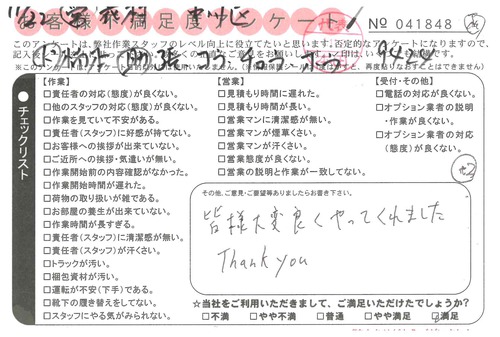 お客様 満足度 アンケート
No 041848
このアンケートは、弊社作業スタッフのレベル向上に役立てたいと思います。否定的なアンケートになりますので、
チェックリスト
【作業】
□責任者の対応(態度)が良くない。
□他のスタッフの対応(態度)が良くない。
□作業を見ていて不安がある。
□責任者(スタッフ)に好感が持てない。
□お客様への挨拶が出来ていない。
□ご近所への挨拶・気遣いが無い。
□作業開始前の内容確認がなかった。
□作業開始時間が遅れた。
□荷物の取り扱いが雑である。
□お部屋の養生が出来ていない。
□作業時間が長すぎる。
□責任者(スタッフ)に清潔感が無い。
□責任者(スタッフ)が汗くさい。
□トラックが汚い。
□梱包資材が汚い。
□運転が不安(下手)である。
□靴下の履き替えをしてない。
□スタッフにやる気がみられない。
【営業】
□見積もり時間に遅れた。
□見積もり時間が長い。
□営業マンに清潔感が無い。
□営業マンが煙草くさい。
□営業マンが汗くさい。
□営業態度が良くない。
□営業の説明と作業が一致してない。
【受付・その他】
□電話の対応が良くない。
□オプション業者の説明
・作業が良くない。
□オプション業者の対応
(態度)が良くない。
+2
その他、ご意見・ご要望等ありましたらお書き下さい。
皆様大変良くやってくれました
Thank you
☆当社をご利用いただきまして、ご満足いただけたでしょうか？
□不満 □やや不満 □普通 □やや満足 □満足